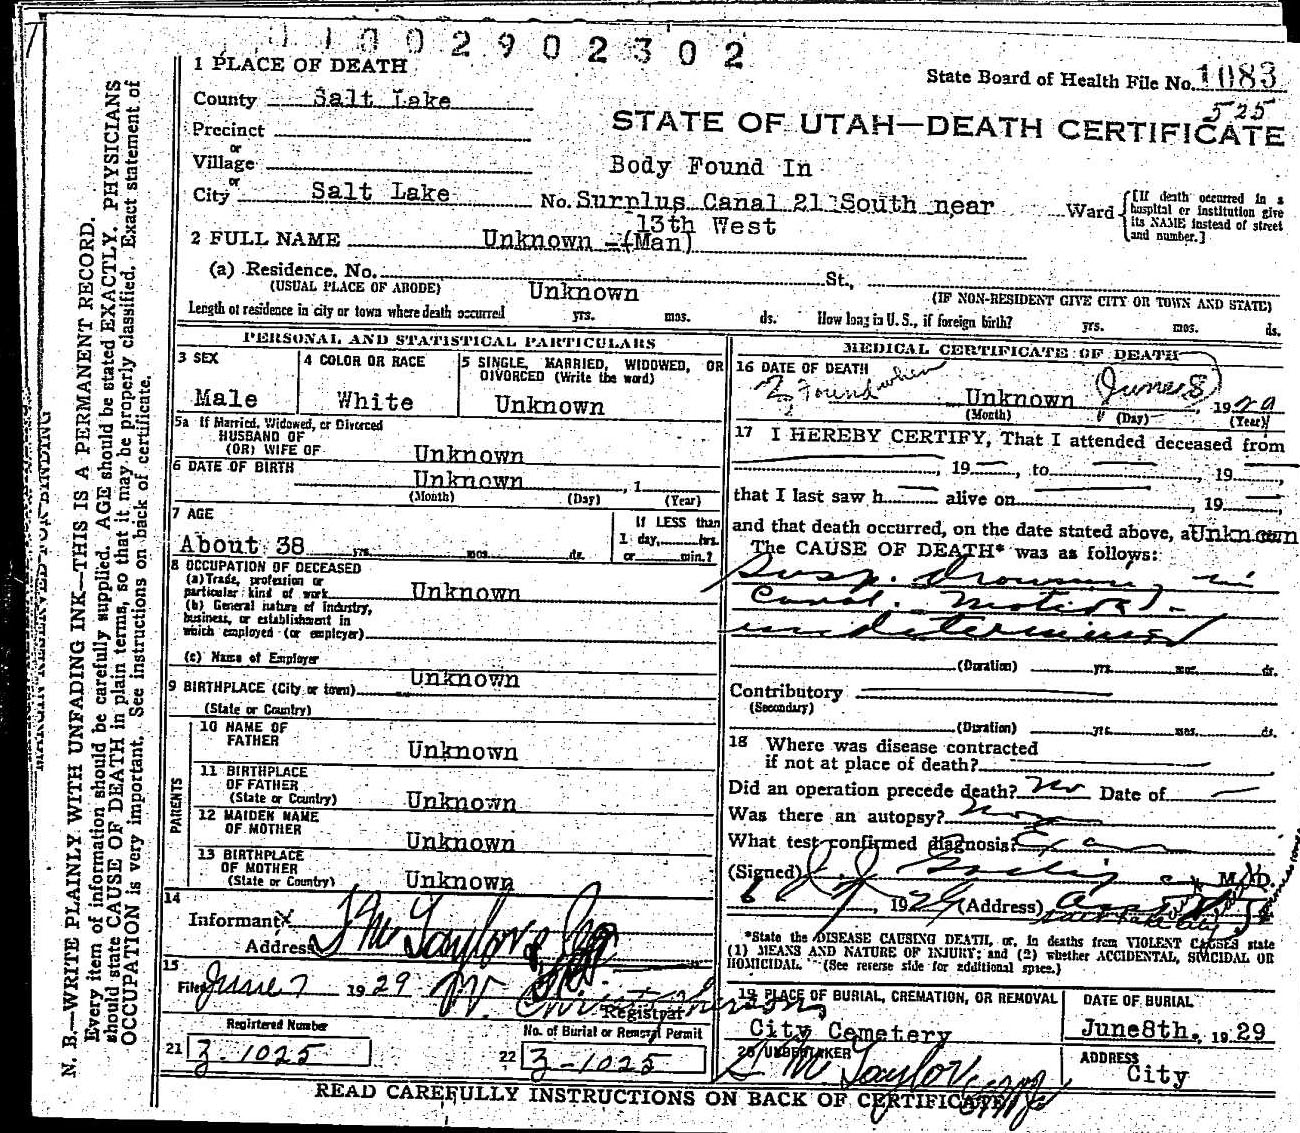 1 0 0 2 9 0 2 3 0 2
1 PLACE OF DEATH
State Board of Health File No. 1083
525
County Salt Lake
STATE OF UTAH—DEATH CERTIFICATE
Precinct
or
Village
Body Found In
or
City Salt Lake No. Surplus Canal 21 South near Ward {[If death occurred in a hospital or institution give its NAME instead of street and number.]
13th West
2 FULL NAME Unknown -(Man)
(a) Residence. No. St.,
(USUAL PLACE OF ABODE) Unknown (IF NON-RESIDENT GIVE CITY OR TOWN AND STATE)
Length of residence in city or town where death occurred yrs. mos. ds. How long in U.S., if foreign birth? yrs. mos. ds.
PERSONAL AND STATISTICAL PARTICULARS
3 SEX
Male
4 COLOR OR RACE
White
5 SINGLE, MARRIED, WIDOWED, OR
DIVORCED (Write the word)
Unknown
5a If Married, Widowed, or Divorced
HUSBAND OF
(OR) WIFE OF Unknown
6 DATE OF BIRTH Unknown , 1
(Month) (Day) (Year)
7 AGE
About 38 yrs. mos. ds.
If LESS than
1 day, hrs.
or min.?
8 OCCUPATION OF DECEASED
(a) Trade, profession or
particular kind of work Unknown
(b) General nature of Industry,
business, or establishment in
which employed (or employer)
(c) Name of Employer
9 BIRTHPLACE (City or town) Unknown
(State or Country)
PARENTS
10 NAME OF
FATHER Unknown
11 BIRTHPLACE
OF FATHER
(State or Country) Unknown
12 MAIDEN NAME
OF MOTHER Unknown
13 BIRTHPLACE
OF MOTHER
(State or Country) Unknown
14
Informant
Address
15
Filed June 7 1929
Registrar
Registered Number
21 3-1025
No. of Burial or Removal Permit
22 3-1025
MEDICAL CERTIFICATE OF DEATH
16 DATE OF DEATH
Found when Unknown June 1929
(Month) (Day) (Year)
17 I HEREBY CERTIFY, That I attended deceased from
, 19 , to 19 ,
that I last saw h alive on , 19 ,
and that death occurred, on the date stated above, at Unknown
The CAUSE OF DEATH* was as follows:
Susp. Drowning in
Canal. Motive
undetermined
(Duration) yrs. mos. ds.
Contributory
(Secondary)
(Duration) yrs. mos. ds.
18 Where was disease contracted
if not at place of death?
Did an operation precede death? No Date of
Was there an autopsy? No
What test confirmed diagnosis?
(Signed) M. D.
6 7, 1929 (Address)
Salt Lake City
*State the DISEASE CAUSING DEATH, or, in deaths from VIOLENT CAUSES state
(1) MEANS AND NATURE OF INJURY; and (2) whether ACCIDENTAL, SUICIDAL OR
HOMICIDAL. (See reverse side for additional space.)
19 PLACE OF BURIAL, CREMATION, OR REMOVAL
City Cemetery
DATE OF BURIAL
June 8th., 1929
20 UNDERTAKER
ADDRESS
City
READ CAREFULLY INSTRUCTIONS ON BACK OF CERTIFICATE
N. B.—WRITE PLAINLY WITH UNFADING INK—THIS IS A PERMANENT RECORD.
Every item of information should be carefully supplied. AGE should be stated EXACTLY. PHYSICIANS
should state CAUSE OF DEATH in plain terms, so that it may be properly classified. Exact statement of
OCCUPATION is very important. See instructions on back of certificate.